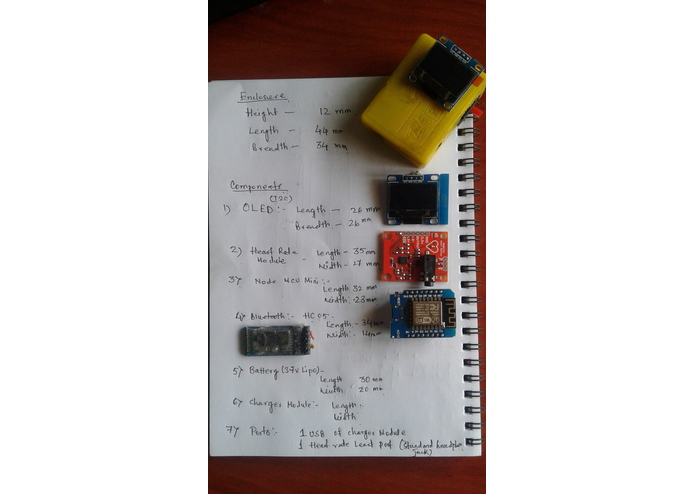 Enclosere
Height - 12 mm
Length - 44 mm
Breadth - 34 mm
Components
(I2C)
1) OLED :- Length - 26 mm
Breadth - 26 mm
2) Heart Rate Module - Length - 35 mm
Width - 27 mm
3) Node MCU Mini :-
Length 32 mm
Width - 23 mm
4) Bluetooth :- HC05 -
Length - 34 mm
Width :- 14 mm
5) Battery (3.7v Lipo) -
Length 30 mm
Width - 20 mm
6) Charger Module :- Length :-
Width
7) Ports :- 1 USB of charger Module
1 Heart rate Lead port (Standard headphone jack)